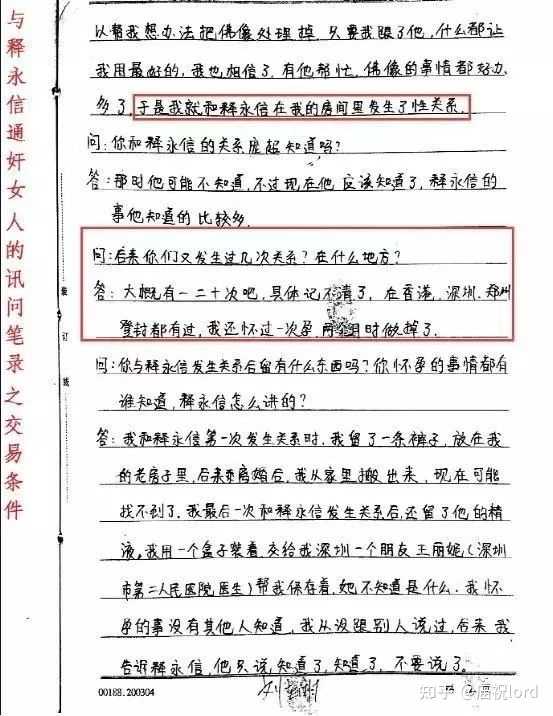 与释永信通奸女人的讯问笔录之交易条件
以帮我想办法把佛像处理掉,只要我跟了他,什么都让
我用最好的,我也相信了,有他帮忙,佛像的事情都好办
多了,于是我就和释永信在我的房间里发生了性关系.
问:你和释永信的关系庞超知道吗?
答:那时他可能不知道,不过现在他应该知道了,释永信的
事他知道的比较多.
问:后来你们又发生过几次关系?在什么地方?
答:大概有一二十次吧,具体记不清了,在香港,深圳.郑州
登封都有过,我还怀过一次孕,两个月时做掉了.
问:你与释永信发生关系后留有什么东西吗?你怀孕的事情都有
谁知道,释永信怎么讲的?
答:我和释永信第一次发生关系时,我留了一条裤子,放在我
的老房子里,后来离婚后,我从家里搬出来,现在可能
找不到了.我最后一次和释永信发生关系后,还留了他的精
液,我用一个盒子装着,交给我深圳一个朋友王丽妮(深圳
市第二人民医院医生)帮我保存着,她不知道是什么.我怀
孕的事没有其他人知道,我从没跟别人说过,后来我
告诉释永信,他只说,知道了,知道了,不要说了。
装
订
线
00188.200304
知乎 @庙祝lord